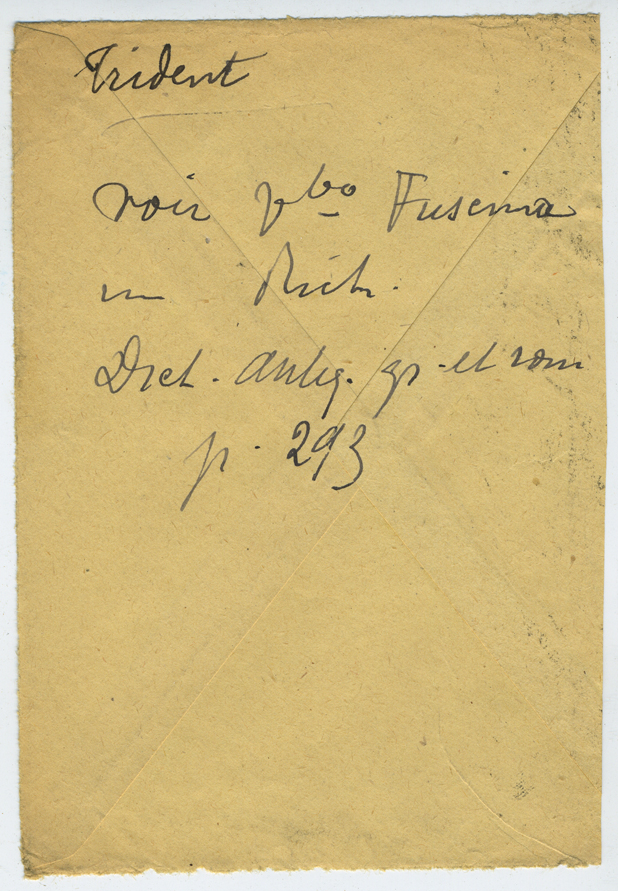 Trident
voir vbo Fuscina
in Rich.
Dict. antiq. gr. et rom
p. 293